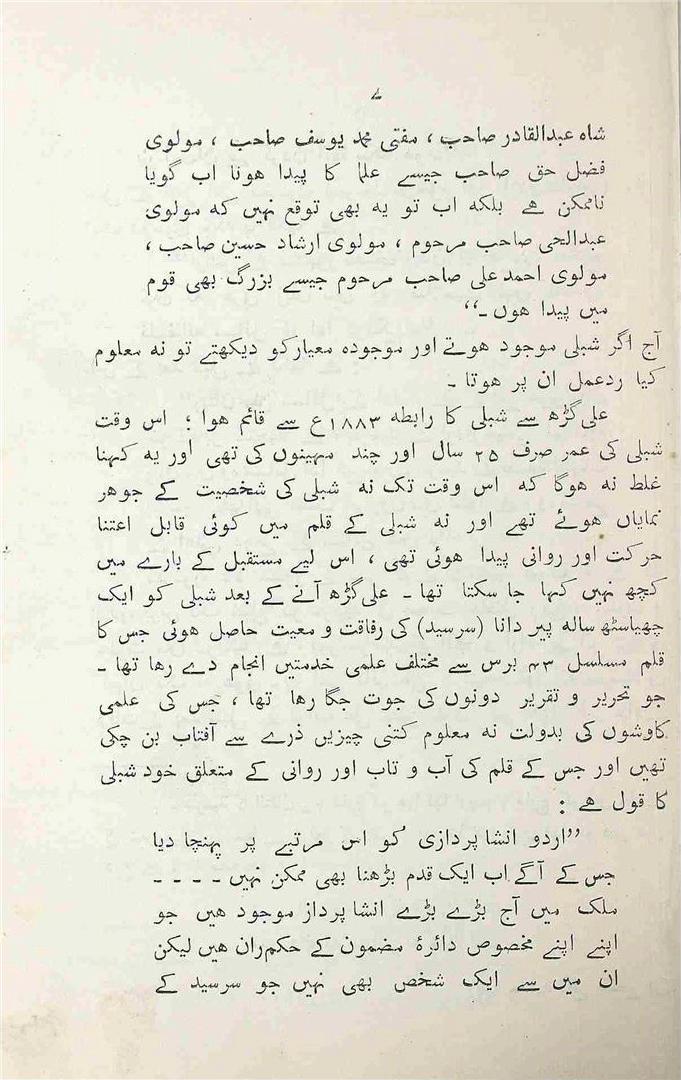 ۷
شاہ عبدالقادر صاحب ، مفتی محمد یوسف صاحب ، مولوی
فضل حق صاحب جیسے علما کا پیدا ہونا اب گویا
ناممکن ہے بلکہ اب تو یہ بھی توقع نہیں کہ مولوی
عبدالحی صاحب مرحوم ، مولوی ارشاد حسین صاحب ،
مولوی احمد علی صاحب مرحوم جیسے بزرگ بھی قوم
میں پیدا ہوں ۔“
آج اگر شبلی موجود ہوتے اور موجودہ معیار کو دیکھتے تو نہ معلوم
کیا ردعمل ان پر ہوتا ۔
علی گڑھ سے شبلی کا رابطہ ۱۸۸۳ع سے قائم ہوا ؛ اس وقت
شبلی کی عمر صرف ۲۵ سال اور چند مہینوں کی تھی اور یہ کہنا
غلط نہ ہوگا کہ اس وقت تک نہ شبلی کی شخصیت کے جوہر
نمایاں ہوئے تھے اور نہ شبلی کے قلم میں کوئی قابل اعتنا
حرکت اور روانی پیدا ہوئی تھی ، اس لیے مستقبل کے بارے میں
کچھ نہیں کہا جا سکتا تھا ۔ علی گڑھ آنے کے بعد شبلی کو ایک
چھیاسٹھ سالہ پیر دانا (سرسید) کی رفاقت و معیت حاصل ہوئی جس کا
قلم مسلسل ۴۳ برس سے مختلف علمی خدمتیں انجام دے رہا تھا ۔
جو تحریر و تقریر دونوں کی جوت جگا رہا تھا ، جس کی علمی
کاوشوں کی بدولت نہ معلوم کتنی چیزیں ذرے سے آفتاب بن چکی
تھیں اور جس کے قلم کی آب و تاب اور روانی کے متعلق خود شبلی
کا قول ہے :
”اردو انشا پردازی کو اس مرتبے پر پہنچا دیا
جس کے آگے اب ایک قدم بڑھنا بھی ممکن نہیں ۔ ۔ ۔ ۔
ملک میں آج بڑے بڑے انشا پرداز موجود ہیں جو
اپنے اپنے مخصوص دائرۂ مضمون کے حکمران ہیں لیکن
ان میں سے ایک شخص بھی نہیں جو سرسید کے